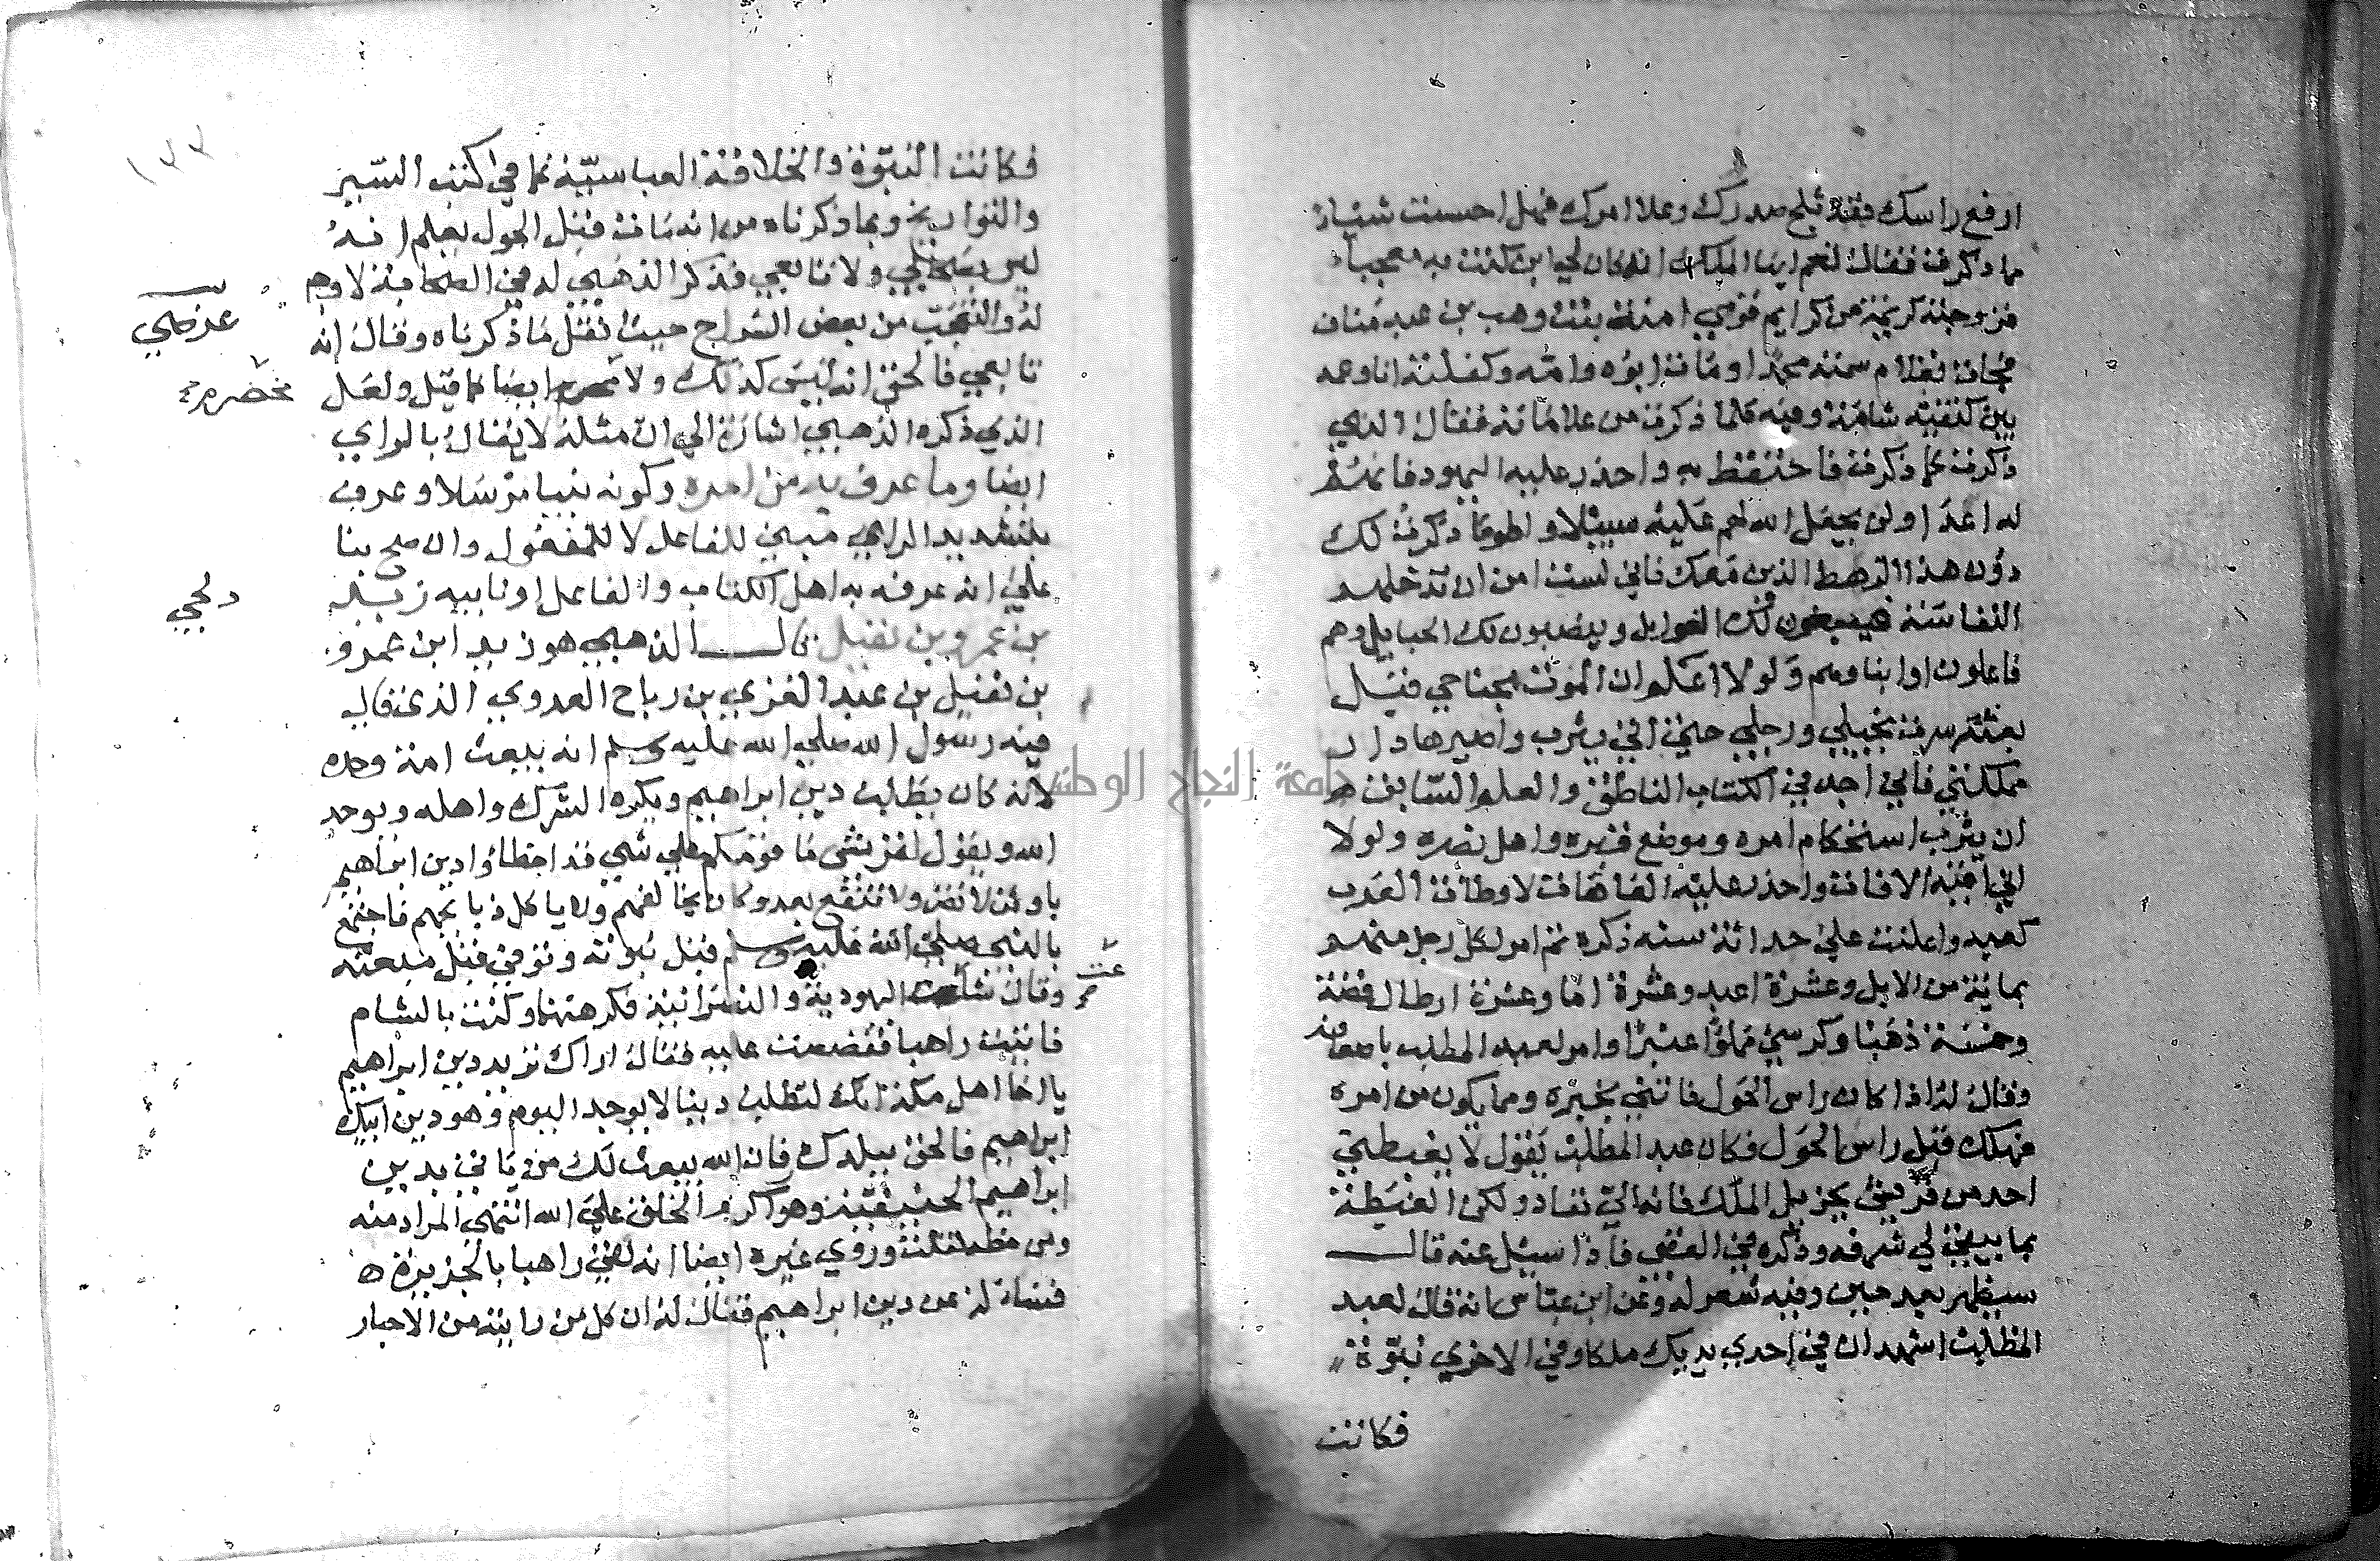 ارفع راسك فقد ثلج صدرك وعلا امرك فهل احسست شيئا
مما ذكرت فقال نعم ايها الملك انه كان لي ابن كنت به معجبا
فزوجته كريمة من كرايم قومي امنة بنت وهب بن عبد مناف
فجات بغلام سمته محمدا ومات ابوه وامه وكفلته انا وعمه
بين كتفيه شامة وفيه كلما ذكرت من علاماته فقال الذي
ذكرت كما ذكرت فاحتفظ به واحذر عليه اليهود فانهم
له اعدا ولن يجعل الله لهم عليه سبيلا واطو ما ذكرت لك
دون هذا الرهط الذين معك فاني لست امن ان تدخلهم
النفاسة فيبغون لك الغوايل وينصبون لك الحبايل وهم
فاعلون او ابناوهم ولولا اعلم ان الموت مجتاحي قبل
بعثه سرت بخيلي ورجلي حتى اتي يثرب واصيرها دار
مملكتي فاني اجد في الكتاب الناطق والعلم السابق
ان يثرب استحكام امره وموضع قبره واهل نصره ولولا
اني اقيه الافات واحذر عليه العاهات لاوطات العرب
كعبه واعلنت على حداثة سنه ذكره ثم امر لكل رجل منهم
بماية من الابل وعشرة اعبد وعشرة اما وعشرة ارطال فضة
وخمسة ذهبا وكرسي مملوا عنبرا وامر لعبد المطلب باضعاف
وقال له اذا كان راس الحول فاتني بخبره ومما يكون من امره
فهلك قبل راس الحول فكان عبد المطلب يقول لا يغبطني
احد من قريش بجزيل الملك فانه الى نفاد ولكن الغبطة
بما يبقى لي شرفه وذكره في العقب فاذا سيل عنه قال
سيظهر بعد حين وفيه شعر له وعن ابن عباس انه قال لعبد
المطلب اشهد ان في احدى يديك ملكا وفي الاخرى نبوة
فكانت
١٣٣
فكانت النبوة والخلافة العباسية كما في كتب السير
والتواريخ وبما ذكرناه من انه مات قبل الحول يعلم انه
ليس بصحابي ولا تابعي فذكر الذهبي له في الصحابة لا وجه
له والتعجب من بعض الشراح حيث نقل ما ذكرناه وقال انه
تابعي فالحق انه ليس كذلك ولا ايضا كما قيل ولعل
مخضرم
الذي ذكره الذهبي اشارة الى ان مثله لا يقال بالراي
ايضا وما عرف به من امره وكونه نبيا مرسلا وعرف
بتشديد الراي مبني للفاعل لا للمفعول وان صح بنا
دلجي
على انه عرفه به اهل الكتاب والفاعل او نايبه زيد
بن عمرو بن نفيل قال الذهبي هو زيد ابن عمرو
بن نفيل بن عبد العزي بن رباح العدوي الذي قال
فيه رسول الله صلى الله عليه وسلم انه يبعث امة وحده
لانه كان يطلب دين ابراهيم ويكره الشرك واهله ويوحد
الله ويقول لقريش ما قومكم على شي قد اخطاوا دين ابراهيم
باوثن لا تضر ولا تنفع بعد وكان يخالفهم ولا ياكل ذبايحهم فاجتمع
بالنبي صلى الله عليه وسلم قبل نبوته وتوفي قبل مبعثه
وقال اليهودية والنصرانية فكرهتهما وكنت بالشام
فاتيت راهبا فقصصت عليه فقال اراك تريد دين ابراهيم
يا اخا اهل مكة انك لتطلب دينا لا يوجد اليوم وهو دين ابيك
ابراهيم فالحق ببلدك فان الله يبعث لك من ياتي بدين
ابراهيم الحنيفية وهو اكرم الخلق على الله انتهى المراد منه
ومن خطه نقلت وروي غيره ايضا انه لقي راهبا بالجزيرة
فساله عن دين ابراهيم فقال له ان كل من رايته من الاحبار